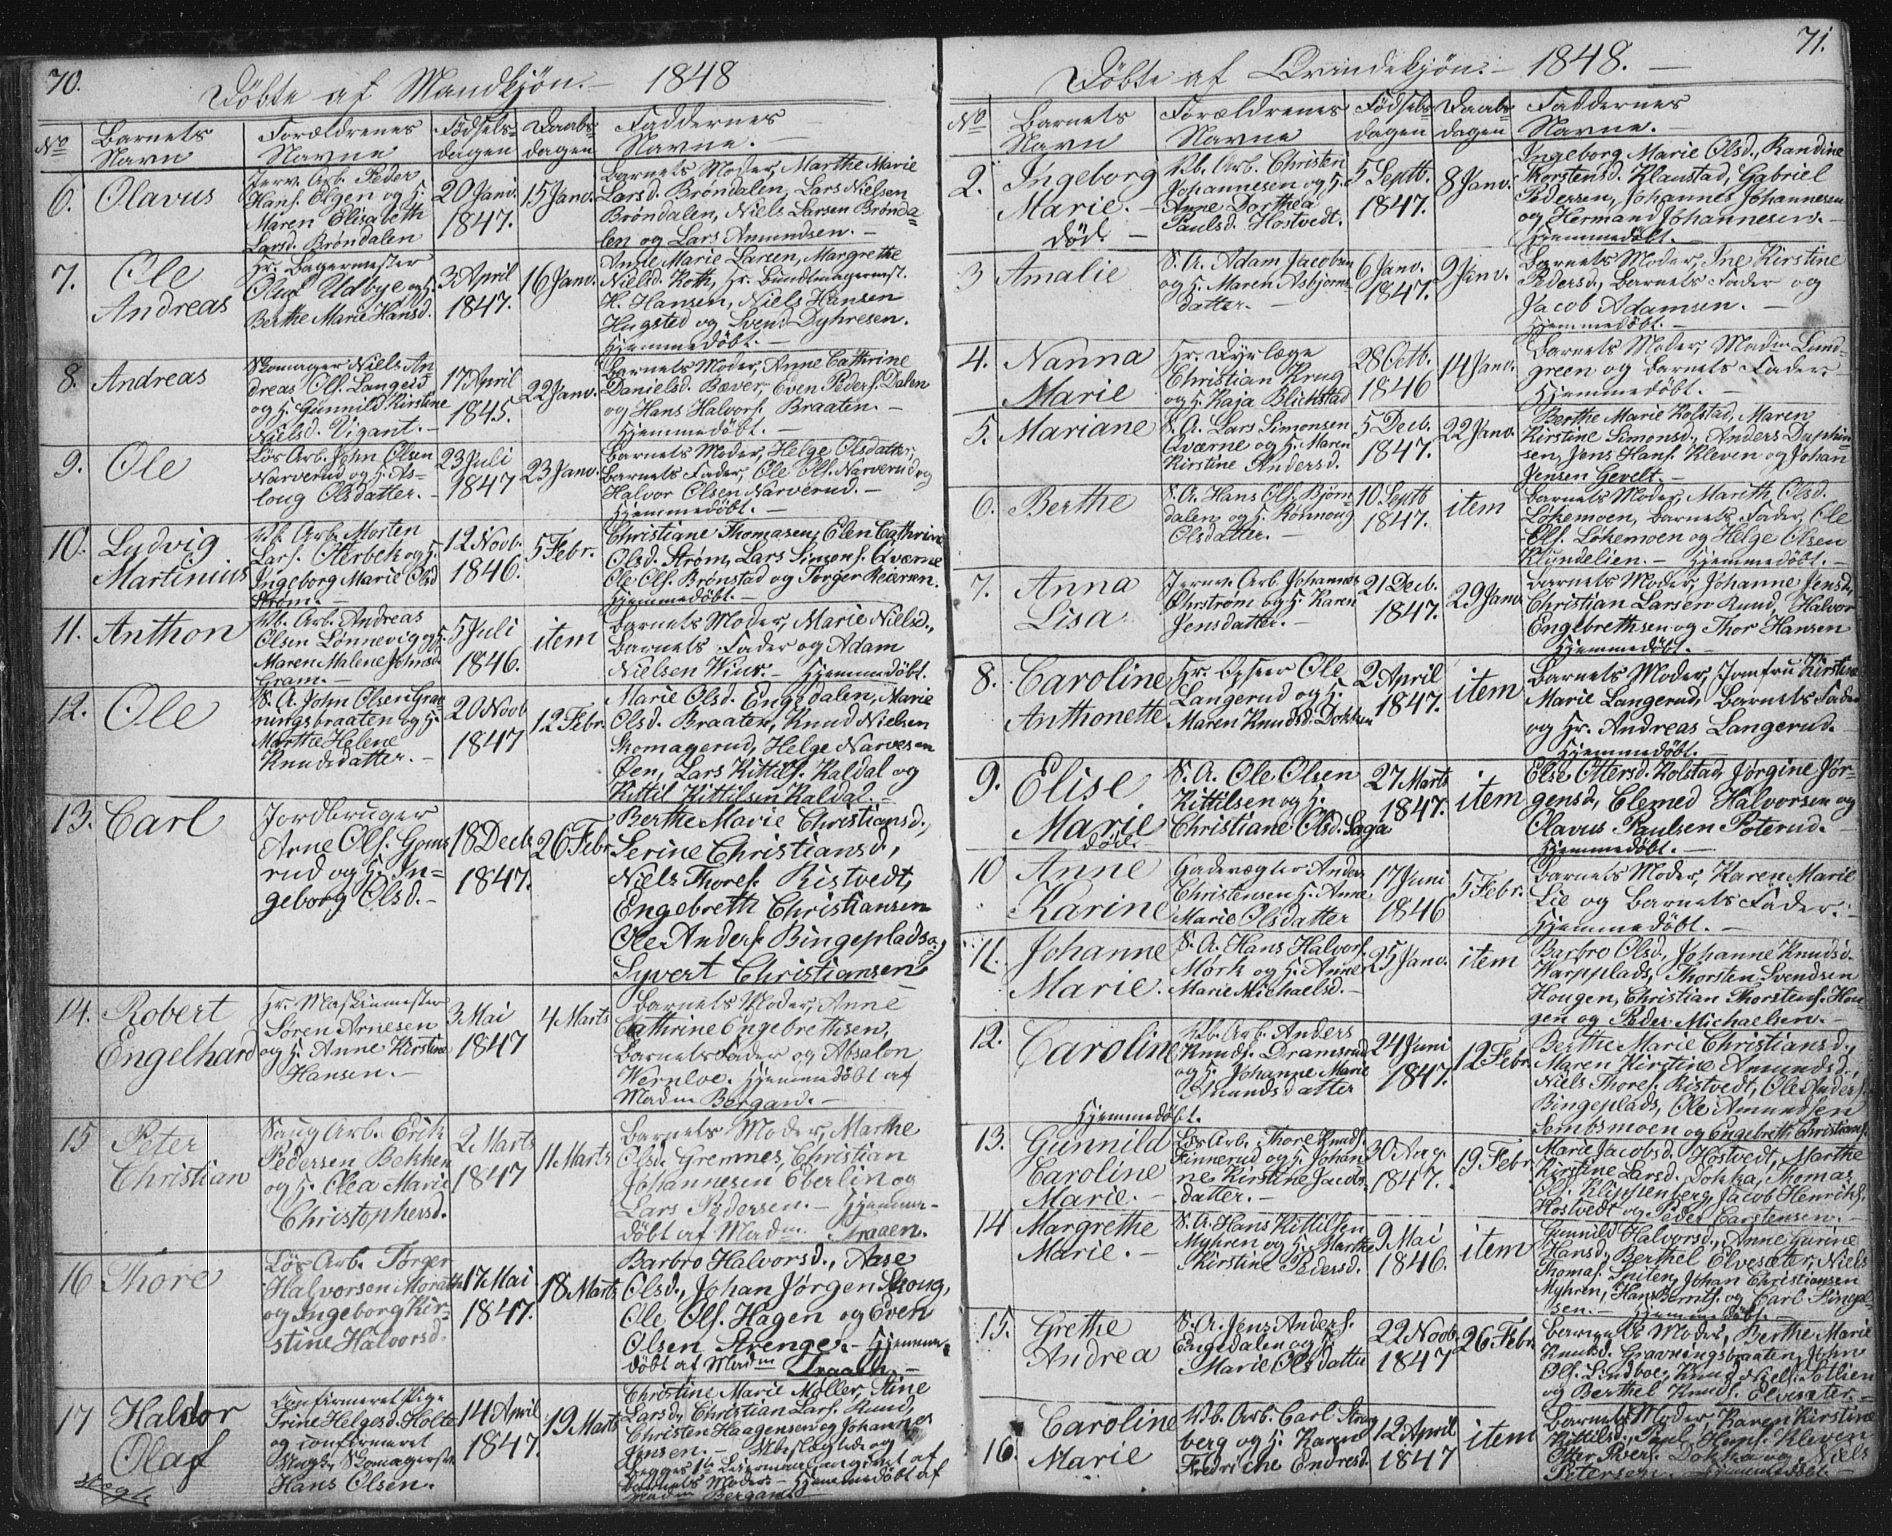 70.
Döbte af Mandkjön. — 1848
No
Barnets Navn
Forældrenes Navne
Födsels-dagen
Daabs-dagen
Faddernes Navne. —
6.
Olavus
Jernv. Arb. Peder
Hans. Elgen og H.
Maren Elisabeth
Larsd. Bröndalen
20 Janv.
1847.
15 Janv.
Barnets Moder, Marthe Marie
Larsd. Bröndalen, Lars Nielsen
Bröndalen, Niels Larsen Brönda-
len og Lars Amundsen. —
7.
Ole
Andreas
Hr. Bagermester
Oluf Udbye og H.
Berthe Marie Hansd.
3 April
1847.
16 Janv.
Anne Marie Larsen, Margrethe
Nielsd. Roth, Hr. Bundtmagermst.
H. Hansen, Niels Hansen
Hugsted og Svend Dyhresen.
Hjemmedöbt. —
8.
Andreas
Skomager Niels An-
dreas Ols. Langeid
og H. Gunnild Kirstine
Nielsd. Vigant. —
17 April
1845.
22 Janv.
Barnets Moder, Anne Cathrine
Danielsd. Bæver, Even Peders. Dalen
og Hans Halvors. Braaten. —
Hjemmedöbt. —
9.
Ole
Lös Arb. John Olsen
Narverud og H. As-
loug Olsdatter. —
23 Juli
1847
23 Janv.
Barnets Moder, Helge Olsdatter,
Barnets Fader, Ole Ols. Narverud og
Halvor Olsen Narverud. —
Hjemmedöbt. —
10.
Ludvig
Martinius
Vb. Arb. Morten
Lars. Oterbek og H.
Ingeborg Marie Olsd
Ström. —
12 Novb.
1846.
5 Febr.
Christiane Thomasen, Elen Cathrine
Olsd. Ström, Lars Simons. Qværne
Ole Ols. Brönstad og Törger Reiersen.
Hjemmedöbt. —
11.
Anthon
Vb. Arb. Andreas
Olsen Lönnevig og H.
Maren Malene Johnsd.
Gram. —
5 Juli
1846.
item
Barnets Moder, Marie Nielsd.,
Barnets Fader og Adam
Nielsen Wiur. — Hjemmedöbt.
12.
Ole
S. A. John Olsen Grav-
ningsbraaten og H.
Marthe Helene
Knudsdatter. —
20 Novb
1847
12 Febr.
Marie Olsd. Engedalen, Marie
Olsd. Braaten, Knud Nielsen
Skomagerud, Helge Narvesen
Öen, Lars Kittils. Kaldal og
Kittil Kittilsen Kaldal. —
13.
Carl
Jordbruger
Arne Ols. Goms-
rud og H. In-
geborg Olsd. —
18 Decb.
1847.
26 Febr.
Berthe Marie Christiansd.,
Serine Christiansd,
Niels Thores. Ristvedt,
Engebreth Christiansen
Ole Anders. Bingeplads og
Syvert Christiansen
14.
Robert
Engelhard
Hr. Maskinmester
Sören Arnesen
og H. Anne Kirstine
Hansen. —
3 Mai
1847
4 Marts
Barnets Moder, Anne
Cathrine Engebrethsen,
Barnets Fader og Absalon
Wernloe. Hjemmedöbt af
Madm Bergan. —
15
Peter
Christian
Saug Arb. Erik
Pedersen Bekken
og H. Olea Marie
Christophersd.
2 Marts
1847
11 Marts
Barnets Moder, Marthe
Olsd. Gremnes, Christian
Johannesen Eberlin og
Lars Pedersen. — Hjemme-
döbt af Madm. Traaen.
16
Thore
Lös Arb. Törger
Halvorsen Moræth
og Ingeborg Kir-
stine Halvorsd.
17 Mai
1847.
18 Marts
Barbro Halvorsd., Aase
Olsd., Johan Jörgen Skoug,
Ole Ols. Hagen og Even
Olsen Strenge. — Hjemme-
döbt af Madm Traaen. —
17
Haldor
Olaf
Uægte
Confirmeret Pige
Trine Helgesd. Holte
og confirmeret
Ungk. Skomagersv.
Hans Olsen.
14 April
1847.
19 Marts
Christine Marie Möller, Stine
Larsd., Christian Lars. Rund,
Christen Haagensen og Johannes
Jensen. — Ubeslægtede og
begges 1ste Leiermaal angivet af
Barnets Moder. — Hjemmedöbt af
Madm Bergan. —
71.
Döbte af Qvindekjön. — 1848. —
No
Barnets Navn
Forældrenes Navne
Födsels-dagen
Daabs-dagen
Faddernes Navne. —
2.
Ingeborg
Marie. —
död. —
Vb. Arb. Christen
Johannesen og H.
Anne Dorthea
Paulsd. Hostvedt.
5 Septb.
1847.
8 Janv.
Ingeborg Marie Olsd., Randine
Torstensd. Klaustad, Gabriel
Pedersen, Johannes Johannesen
og Herman Johannesen. —
Hjemmedöbt. —
3
Amalie
S. A. Adam Jacobsen
og H. Maren Asbjörns-
datter. —
6 Janv.
1847.
9 Janv.
Barnets Moder, Ine Kirstine
Pedersd., Barnets Fader og
Jacob Adamsen. —
Hjemmedöbt. —
4.
Nanna
Marie
Hr. Dyrlæge
Christian Krug
og H. Kaja Blichstad
28 Octb.
1846
14 Janv.
Barnets Moder, Madm Lund-
green og Barnets Fader. —
Hjemmedöbt. —
5.
Mariane
S. A. Lars Simonsen
Qværne og H. Maren
Kirstine Andersd.
5 Decb.
1847.
22 Janv.
Berthe Marie Kolstad, Maren
Kirstine Simonsd., Anders Dephin-
sen, Jens Hans. Kleven og Johan
Jensen Gevelt. —
6.
Berthe
S. A. Hans Ols. Björn-
dalen og H. Rönnoug
Olsdatter. —
10 Septb
1847.
item
Barnets Moder, Marith Olsd.
Lökemoen, Barnets Fader, Ole
Ols. Lökemoen og Helge Olsen
Klundelien. — Hjemmedöbt. —
7.
Anna
Lisa.
Jernv. Arb. Johannes
Öhrström og H. Karen
Jensdatter. —
21 Decb.
1847.
29 Janv.
Barnets Moder, Johanne Jensd,
Christian Larsen Rund, Halvor
Engebrethsen og Thor Hansen
Hjemmedöbt. —
8.
Caroline
Anthonette
Hr. Opseer Ole
Langerud og H.
Maren Knudsd. Dokken
2 April
1847.
item
Barnets Moder, Jomfru Kirstine
Marie Langerud, Barnets Fader
og Hr. Andreas Langerud.
Hjemmedöbt. —
9.
Elise
Marie
död.
S. A. Ole Olsen
Kittilsen og H.
Christiane Olsd. Saga
27 Marts
1847.
item
Else Ottersd. Kolstad, Jörgine Jör-
gensd., Clemed Halvorsen og
Olavus Paulsen Poterud. —
Hjemmedöbt. —
10
Anne
Karine
Gadevægter Anders
Christensen H. Anne
Marie Olsdatter
17 Juni
1846
5 Febr.
Barnets Moder, Karen Marie
Lie og Barnets Fader. —
Hjemmedöbt. —
11.
Johanne
Marie.
S. A. Hans Halvors.
Mörk og H. Anne
Marie Michaelsd. —
25 Janv.
item
Barbro Olsd., Johanne Knudsd.
Warpplads, Thorsten Svendsen
Hougen, Christian Thorstens. Hou-
gen og Peder Michaelsen. —
12.
Caroline
Hjemmedöbt.
Vb. Arb. Anders
Knuds. Dramsrud
og H. Johanne Marie
Amundsdatter
24 Juni
1847.
12 Febr.
Berthe Marie Christiansd.,
Maren Kirstine Amundsd.,
Niels Thores. Ristvedt, Ole Anders.
Bingeplads, Ole Amundsen
Tembsmoen og Engebreth Christians.
13.
Gunnild
Caroline
Marie. —
Lös Arb. Thore Knuds.
Finnerud og H. Johan-
ne Kirstine Jacobs-
datter. —
30 Aug.
1847.
19 Febr.
Marie Jacobsd. Hostvedt, Marthe
Kirstine Larsd. Dokka, Thomas
Ols. Klippenberg, Jacob Henriks.
Hostvedt og Peder Carstensen. —
14
Margrethe
Marie. —
S. A. Hans Kittilsen
Myhren og H. Marthe
Kirstine Pedersd.
9 Mai
1846.
item
Gunnild Halvorsd., Anne Gurine
Hansd., Berthel Elvesæter, Niels
Thomas. Teilen, Johan Christiansen
Myhren, Hans Berents. og Carl
Hjemmedöbt. —
15.
Grethe
Andrea
S. A. Jens Anders.
Engedalen og H.
Marie Olsdatter
22 Novb.
1847
26 Febr.
Barnets Moder, Berthe Marie
Knudsd. Gravningsbraaten, John
Ols. Lindboe, Knud Niels. Sollien
og Berthel Knuds. Elvesæter. —
16.
Caroline
Marie
Vb. Arb. Carl Strøg-
berg og H. Karen
Fredriche Endresd.
12 April
1847
item
Barnets Moder, Karen Kirstine
Kittilsd., Paul Hans. Kleven
Otter Pvers. Dokka og Niels
Petersen. Hjemmedöbt. —